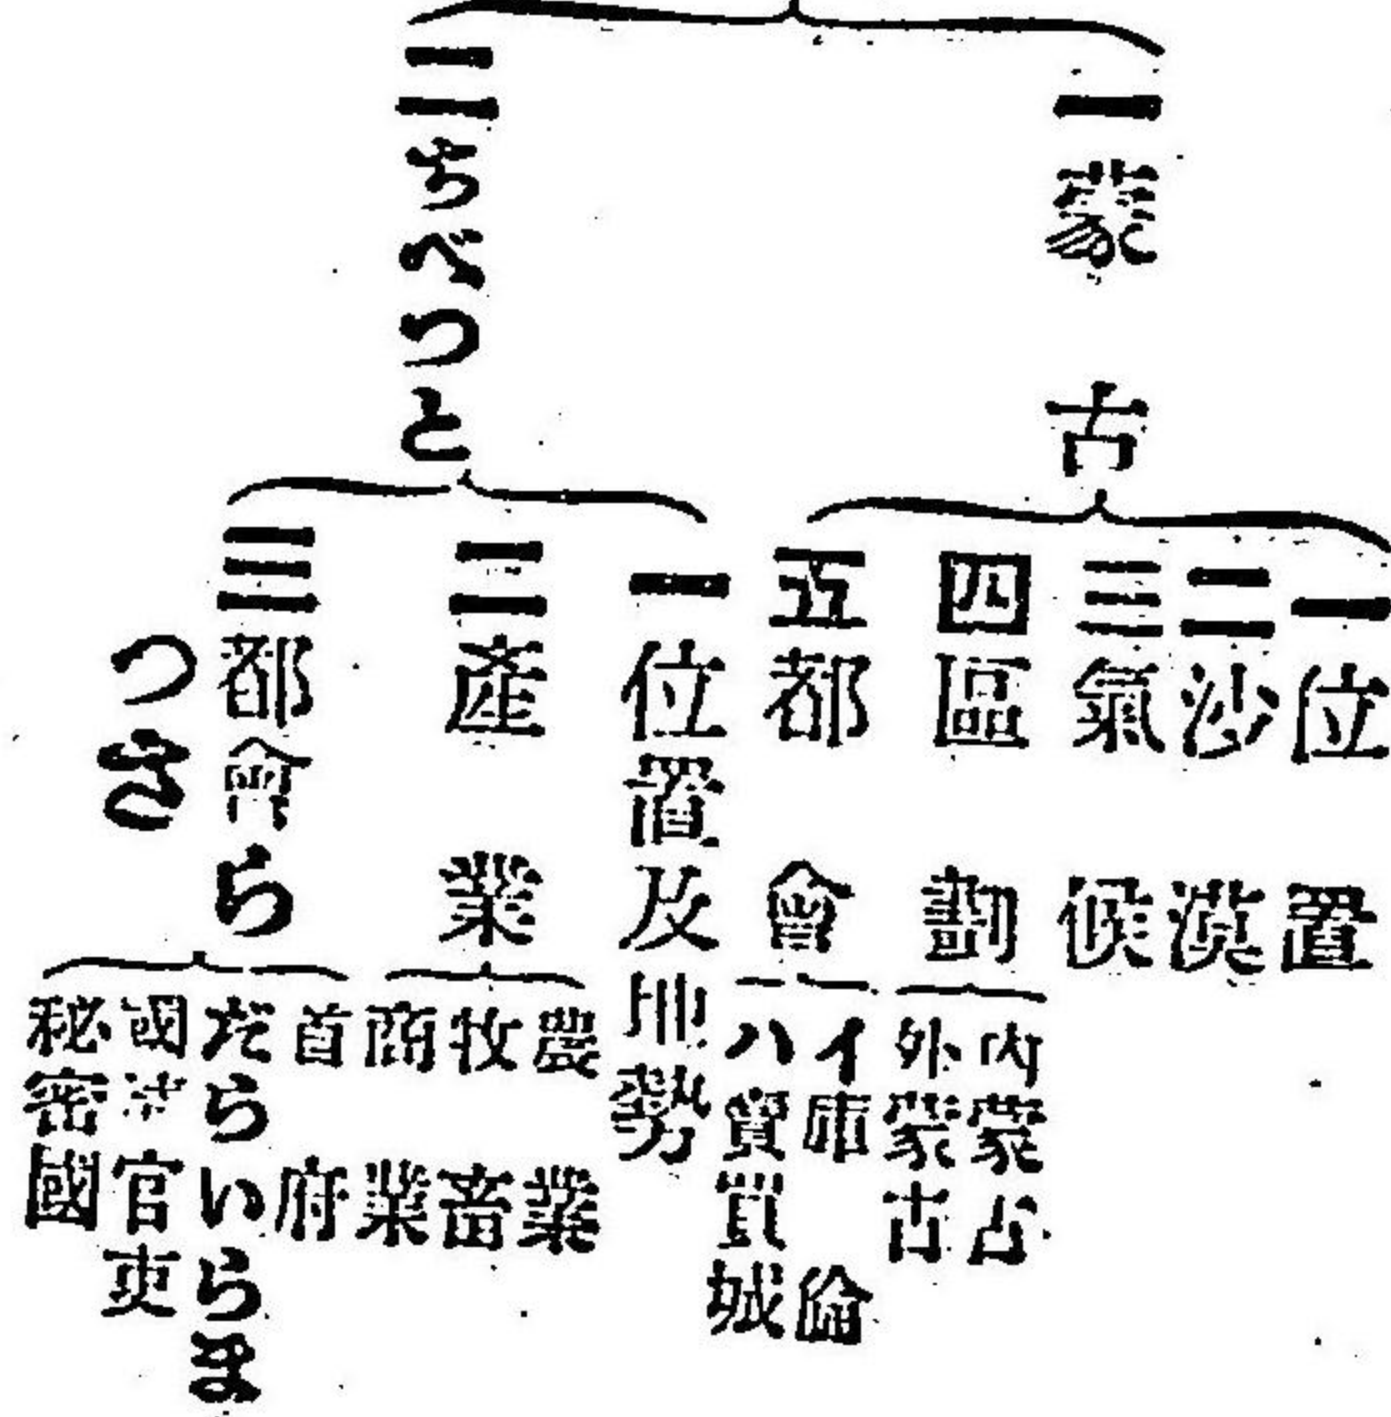 一蒙古
一位置
二沙漠
三氣候
四區劃
內蒙古
外蒙古
五都會
イ庫倫
ハ賣買城
二ちべつと
一位置及地勢
二產業
農業
牧畜
商業
三都會らつさ
首府
だらいらま
官吏
秘密國